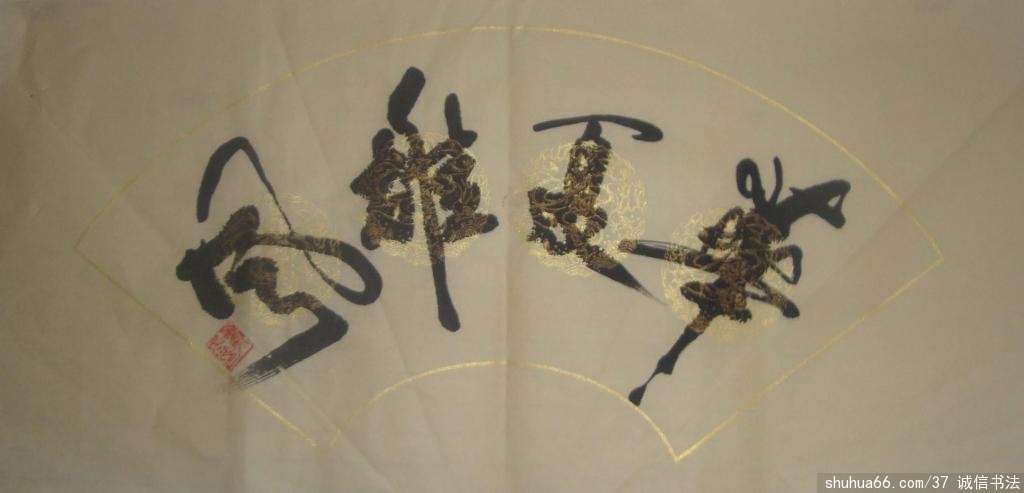 華夏雄風
shuhua66.com/37 诚信书法